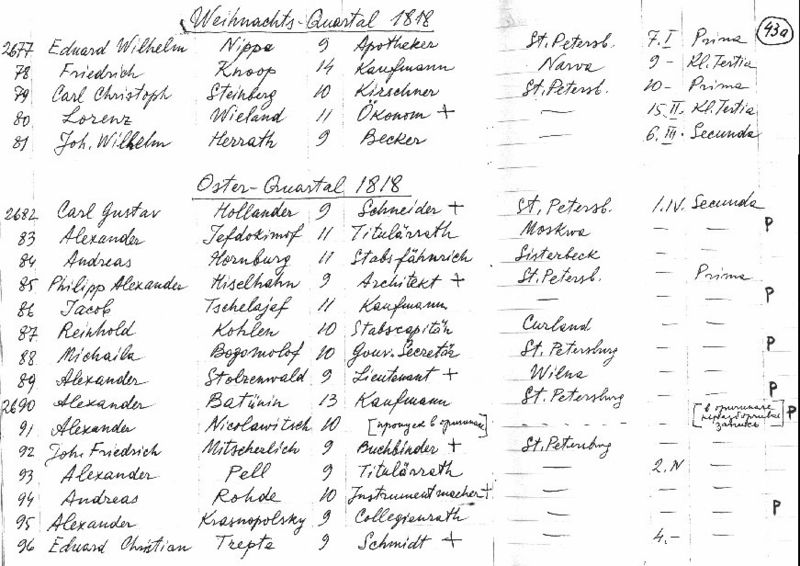 Weihnachts-Quartal 1818 43a
2677 Eduard Wilhelm Nippa 9 Apotheker St. Petersb. 7. I Prima
78 Friedrich Knoop 14 Kaufmann Narva 9 - Kl. Tertia
79 Carl Christoph Steinberg 10 Kirschner St. Petersb. 10 - Prima
80 Lorenz Wieland 11 Ökonom + — 15. II. Kl. Tertia
81 Joh. Wilhelm Herrath 9 Becker — 6. III. Secunda
Oster-Quartal 1818
2682 Carl Gustav Hollander 9 Schneider + St. Petersb. 1. IV. Secunda
83 Alexander Jefdokimof 11 Titulärrath Moskwa — — P
84 Andreas Hornburg 11 Stabsfähnrich Sisterbeck — —
85 Philipp Alexander Hiselhahn 9 Architekt + St. Petersb. — Prima
86 Jacob Tschelajef 11 Kaufmann — — — P
87 Reinhold Kohlen 10 Stabscapitän Curland — —
88 Michaila Bogomolof 10 Gouv. Secretär St. Petersburg — — P
89 Alexander Stolzenwald 9 Lieutenant + Wilna — —
2690 Alexander Batünin 13 Kaufmann St. Petersburg — — P
91 Alexander Nicolawitsch 10 [пропуск в оригинале] [в оригинале неразборчивая запись] P
92 Joh. Friedrich Mitscherlich 9 Buchbinder + St. Petersburg — —
93 Alexander Pell 9 Titulärrath — 2. IV —
94 Andreas Rohde 10 Instrumentmacher + — — —
95 Alexander Krasnopolsky 9 Collegienrath — — — P
96 Eduard Christian Trepte 9 Schmidt + — 4. - —